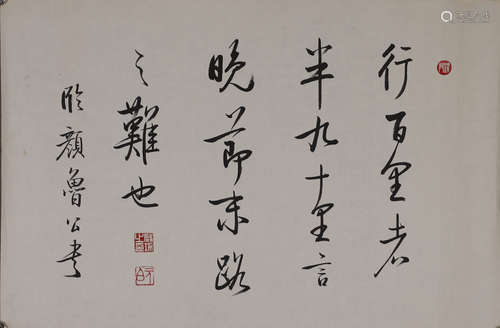 行百里者
半九十里言
晚節末路
之難也
臨顏魯公書